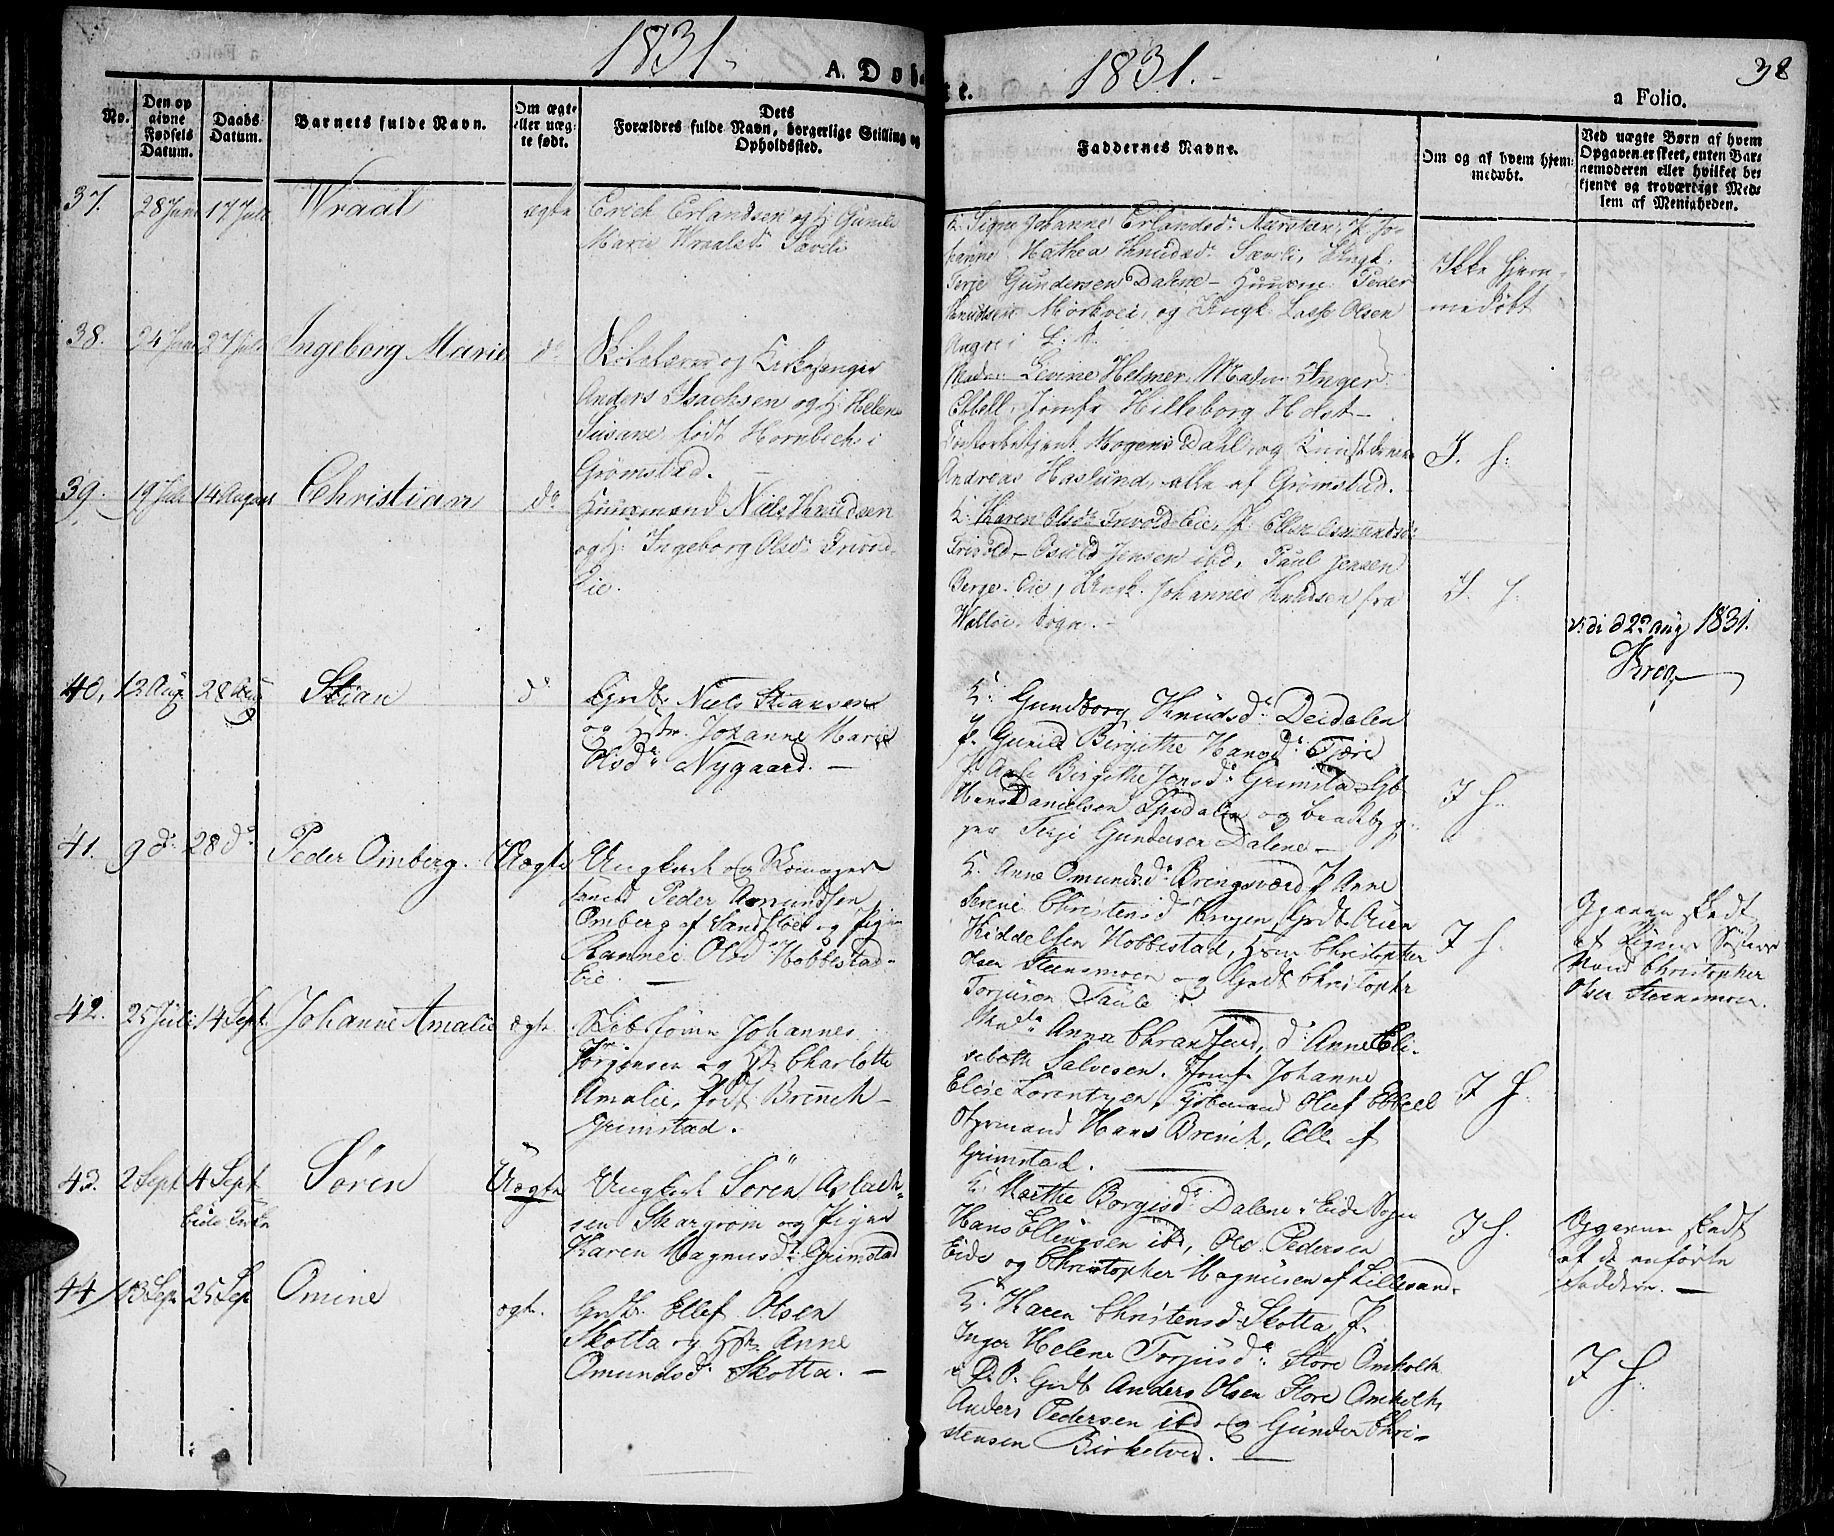 1831.
A. Døbte.
1831.
38
a Folio.
No.
Den op
givne
Fødsels
Datum.
Daabs-
Datum.
Barnets fulde Navn.
Om ægte
eller uæg-
te født.
Dets
Forældres fulde Navn, borgerlige Stilling og
Opholdssted.
Faddernes Navne.
Om og af hvem hjem-
medøbt.
Ved uægte Børn af hvem
Opgaven er skeet, enten Bar-
nemoderen eller hvilket be-
kjendt og troværdigt Med-
lem af Menigheden.
37.
28 Juni
17 Juli
Wraal
ægte
Erich Erlandsen og H. Gunild
Marie Wraalsd.
K. Signe Johanne Erlandsd. P. Jo-
hanne Mathea Knudsd. Ungk.
Terje Gundersen Dalene - Huusm. Peder
Knudsen Mørkvei, og Ungk. Lasse Olsen
Angrei
Ikke hjem-
medøbt
38.
24 Juni
27 Juli
Ingeborg Marie
do
Skolelærer og Kirkesanger
Anders Isachsen og H. Helene
Susane født Hornbech i
Grømstad.
Mad. Levine Helmer, Mad. Inger
Ebbell, Jomfr. Hilleborg Holst -
Mogens Dahl og
Andreas Haslund, alle af Grømstad.
I. H.
39.
19 Juli
14 August
Christian
do
Huusmand Niels Knudsen
og H. Ingeborg Olsd. Trivold-
Eie.
K. Karen Olsd. Trivold Eie, P. Ellen Osmundsd.
Trivold - Osuld Jensen ibd, Paul Jensen
Berge-Eie, Ungk. Johannes Knudsen fra
Sogn. -
I. H.
Vidi d 22 Aug 1831.
Krog
40.
12 Aug
28 Aug
Stian
do
Grdb. Niels Stiansen
og Hstr. Johanne Marie
Olsd. Nygaard. -
K. Gundborg Knudsd. Deidalen
P. Gunild Birgithe Hansd. Tjøre
P. Birgithe Jonsd. Grimstad Gb.
Hans Danielsen og
Terje Gundersen Dalene -
I H.
41.
9 d.
28 do
Peder Omberg.
Uægte
Ungkarl og Skomager
Peder Asmundsen
Omberg af Sandstøe og Pigen
Rannei Olsd Hobbestad-
Eie. -
K. Anne Omundsd. Bringsværd P. Anne
Serine Christensd. Grdb.
Kiddelsen Hobbestad, Hsm Christopher
Olsen Steensmoen og Grdb Christopher
Torjusen Taule.
I H.
Opgaven skedt
af Pigens Søsters
Mand Christopher
Olsen Steensmoen.
42.
25 Juli
14 Sept.
Johanne Amalie
ægte
Johannes
Jörgensen og Hst. Charlotte
Amalie, født Brinch -
Grimstad.
Mad. Anna do Anne Eli-
sebeth Salvesen. Jomf. Johanne
Elise Lorentzen, Oluf Ebbell
Styrmand Hans Brinch, Alle af
Grimstad.
I H.
43.
2 Sept
4 Sept
Eide Kirke
Sören
Uægte
Ungkarl Sören Aslach-
sen og Pigen
Karen Magnusd. Grimstad
K. Marthe Borgisd. Dalene i Eide Sogn
Hans Ellingsen ibd, Ole Pedersen
Eide og Christopher Magnusen af Lillesand.
I H.
Opgaven skedt
af de anförte
Faddere. -
44
13 Sept
25 Sept
Omine
ægte.
Grdb. Ellef Olsen
Skotta og Hstr. Anne
Omundsd. Skotta. -
K. Karen Christensd. Skotta, P.
Inger Helene Torjusd. Store Omholt
Grdb Anders Olsen Store Omholt,
Anders Pedersen ibd og Gunder Chri-
stensen Birketved. -
I H.